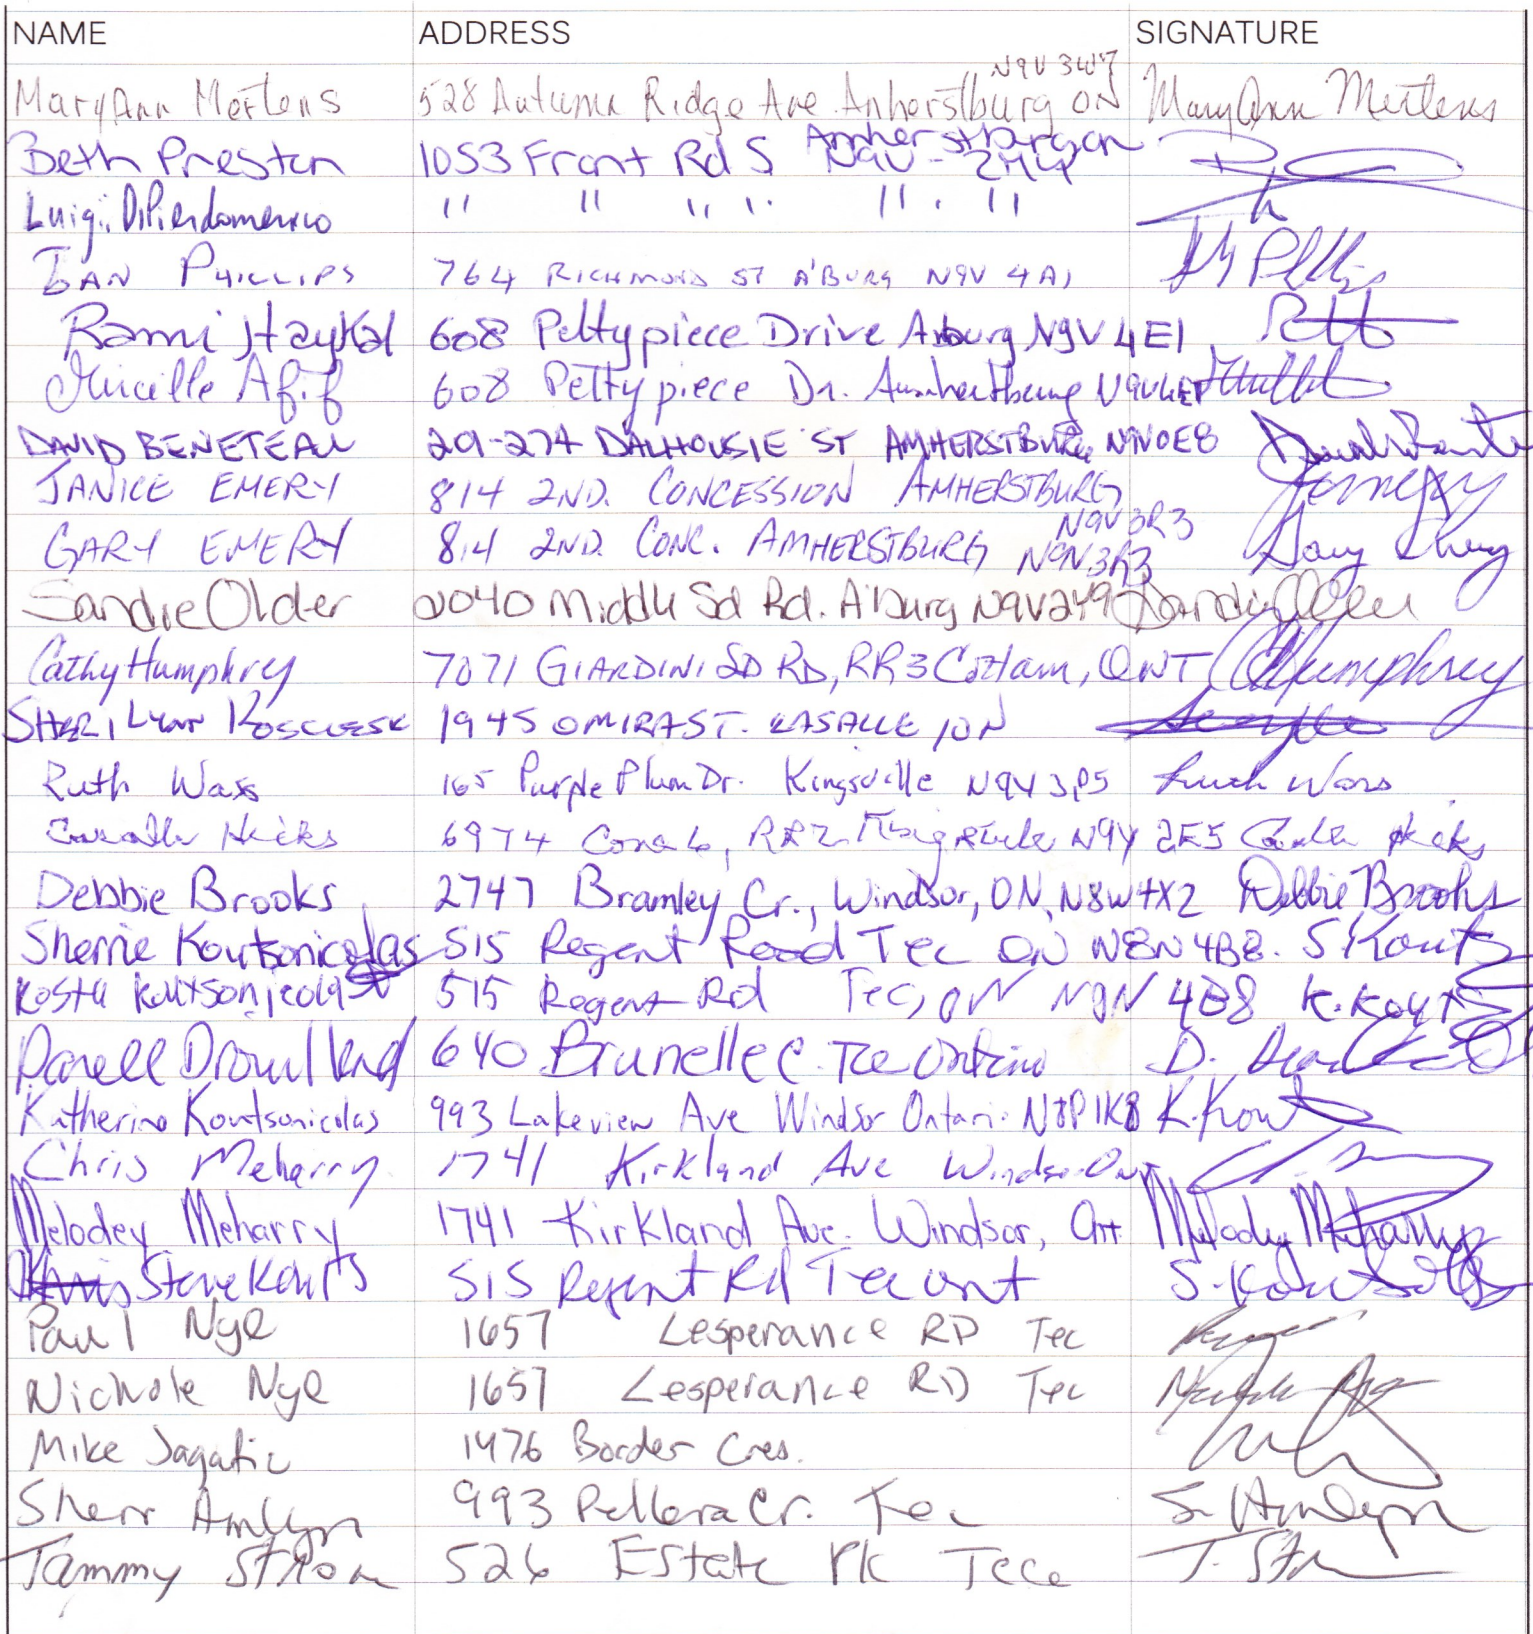 NAME ADDRESS SIGNATURE
N9V 3W7
MaryAnn Mertens 528 Autumn Ridge Ave. Amherstburg ON MaryAnn Mertens
Amherstburg on
Beth Preston 1053 Front Rd S N9V - 2M4
Luigi DiPierdomenico " " " " " "
IAN PHILLIPS 764 RICHMOND ST A'BURG N9V 4A1
Rami Haykal 608 Pettypiece Drive Aburg N9V 4E1
Mireille Afif 608 Pettypiece Dr. Amherstburg N9V4E1
DAVID BENETEAU 201-274 DALHOUSIE ST AMHERSTBURG N9V0E8
JANICE EMERY 814 2ND. CONCESSION AMHERSTBURG
N9V 3R3
GARY EMERY 814 2ND. CONC. AMHERSTBURG N9V3R3 Gary Emery
Sandie Older 2040 Middle Sd Rd. A'burg N9V2Y9 Sandie Older
Cathy Humphrey 7071 GIARDINI SD RD, RR3 Cottam, ONT CHumphrey
SHERI LYNN 1945 OMIRA ST. LASALLE, ON
Ruth Wass 165 Purple Plum Dr. Kingsville N9Y 3P5 Ruth Wass
Hicks 6974 Conc 6, RR2 Kingsville N9Y 2E5 Hicks
Debbie Brooks 2747 Bramley Cr., Windsor, ON, N8W4X2 Debbie Brooks
Sherrie Koutsonicolas 515 Regent Road Tec ON N8N 4B8. S. Kouts
Kosta Koutsonicolas 515 Regent Rd Tec, ON N8N 4B8 K. Kouts
Darell Drouillard 640 Brunelle C. Tec Ontario D.
Katherine Koutsonicolas 993 Lakeview Ave Windsor Ontario N8P1K8 K. Kout
Chris Meharry 1741 Kirkland Ave Windsor Ont
Melodey Meharry 1741 Kirkland Ave. Windsor, Ont. Melodey Meharry
Steve Kouts 515 Regent Rd Tec ont S. Kouts
Paul Nye 1657 Lesperance RD Tec
Nichole Nye 1657 Lesperance RD Tec Nichole Nye
Mike Jagatic 1476 Border Cres.
Sherr Amlyn 993 Pellora Cr. Tec S. Amlyn
Tammy Strom 526 Estate Pk Tece T. St